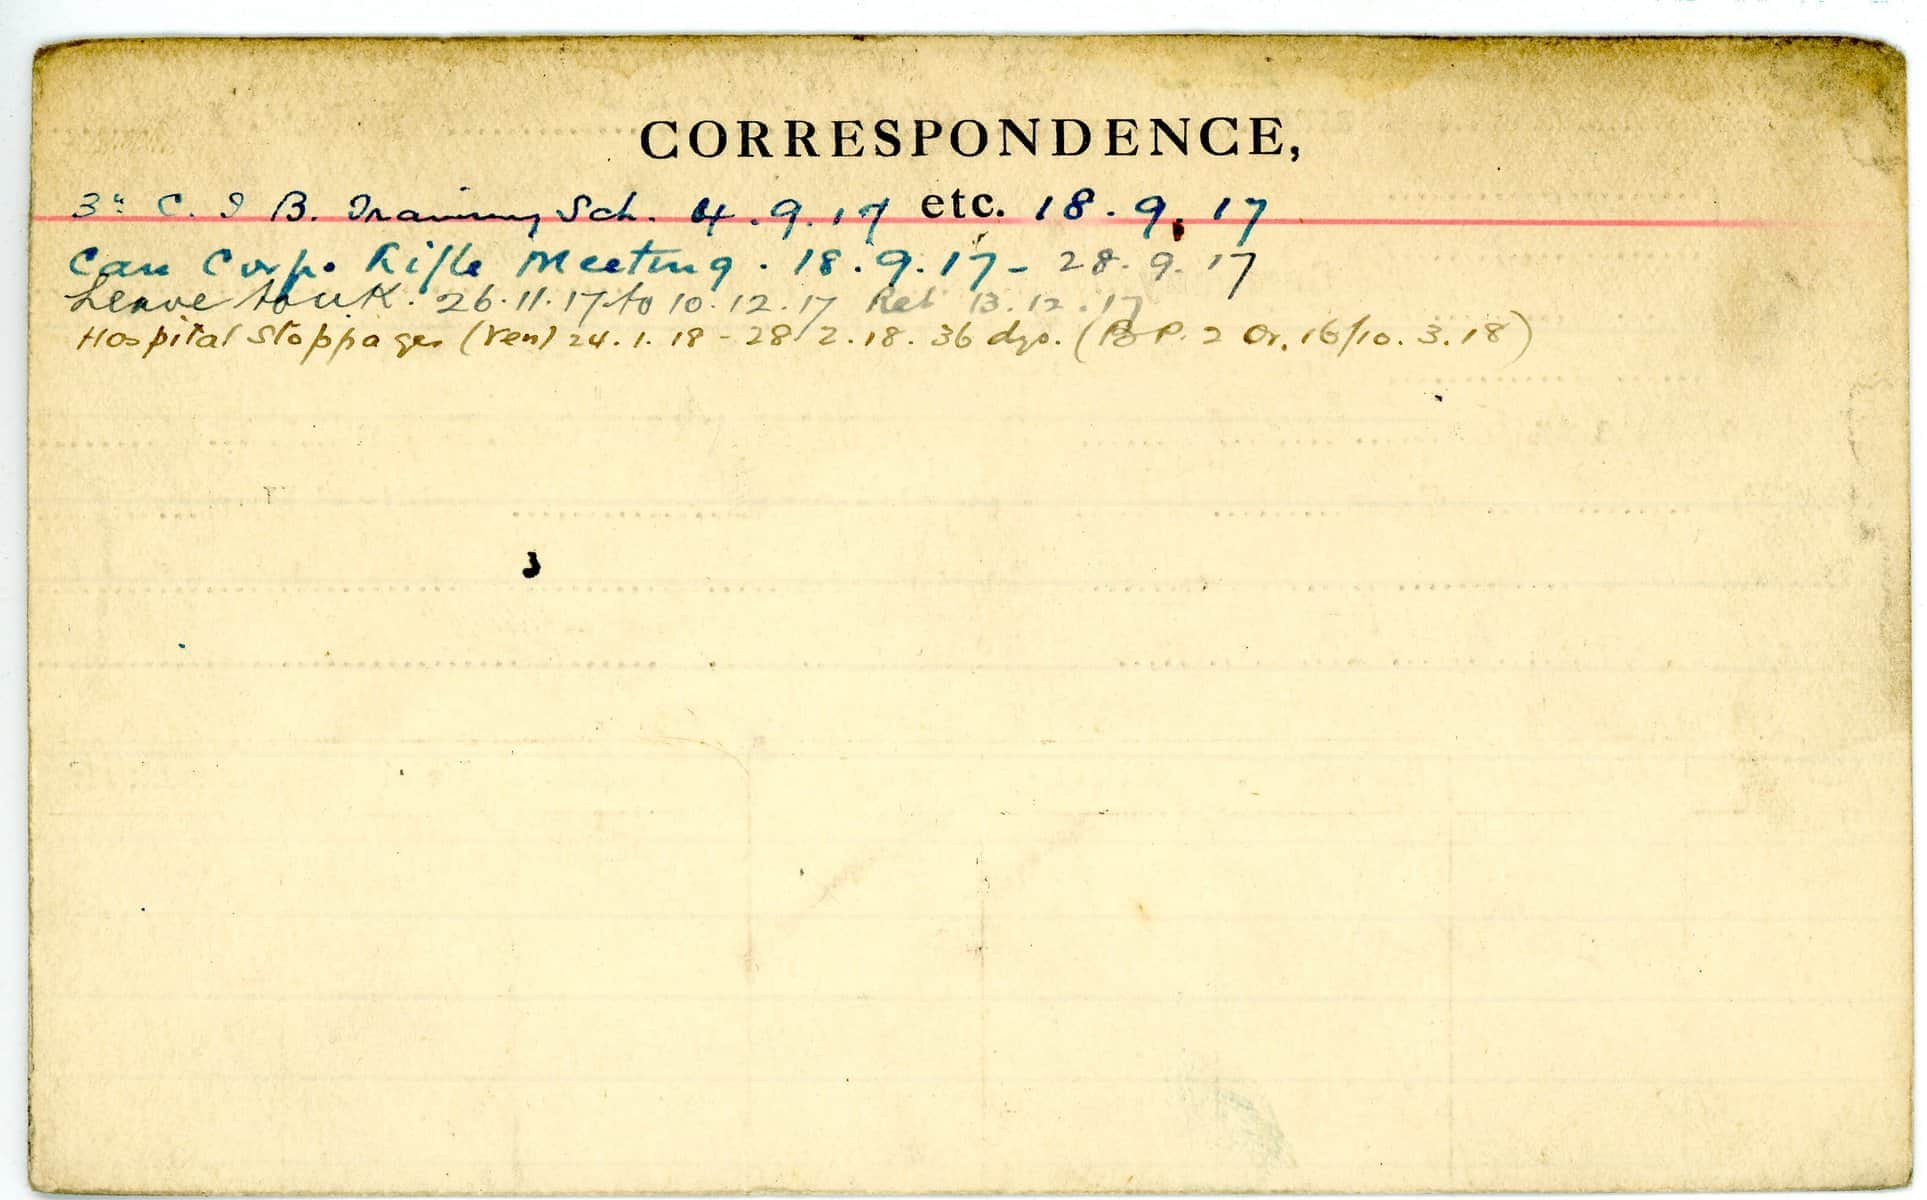 CORRESPONDENCE,
3rd C. I B. Training Sch. 4.9.17 etc. 18.9.17
Can Corps. Rifle Meeting. 18.9.17 - 28.9.17
Leave to U.K. 26.11.17 to 10.12.17 Ret 13.12.17
Hospital Stoppages (Ven) 24.1.18 - 28/2.18. 36 dys. (P. 2 Or. 16/10.3.18)